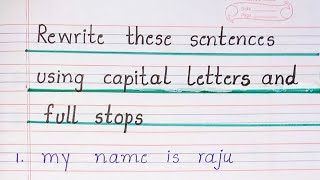 Rewrite these sentences
using capital letters and
full stops
1. my name is raju